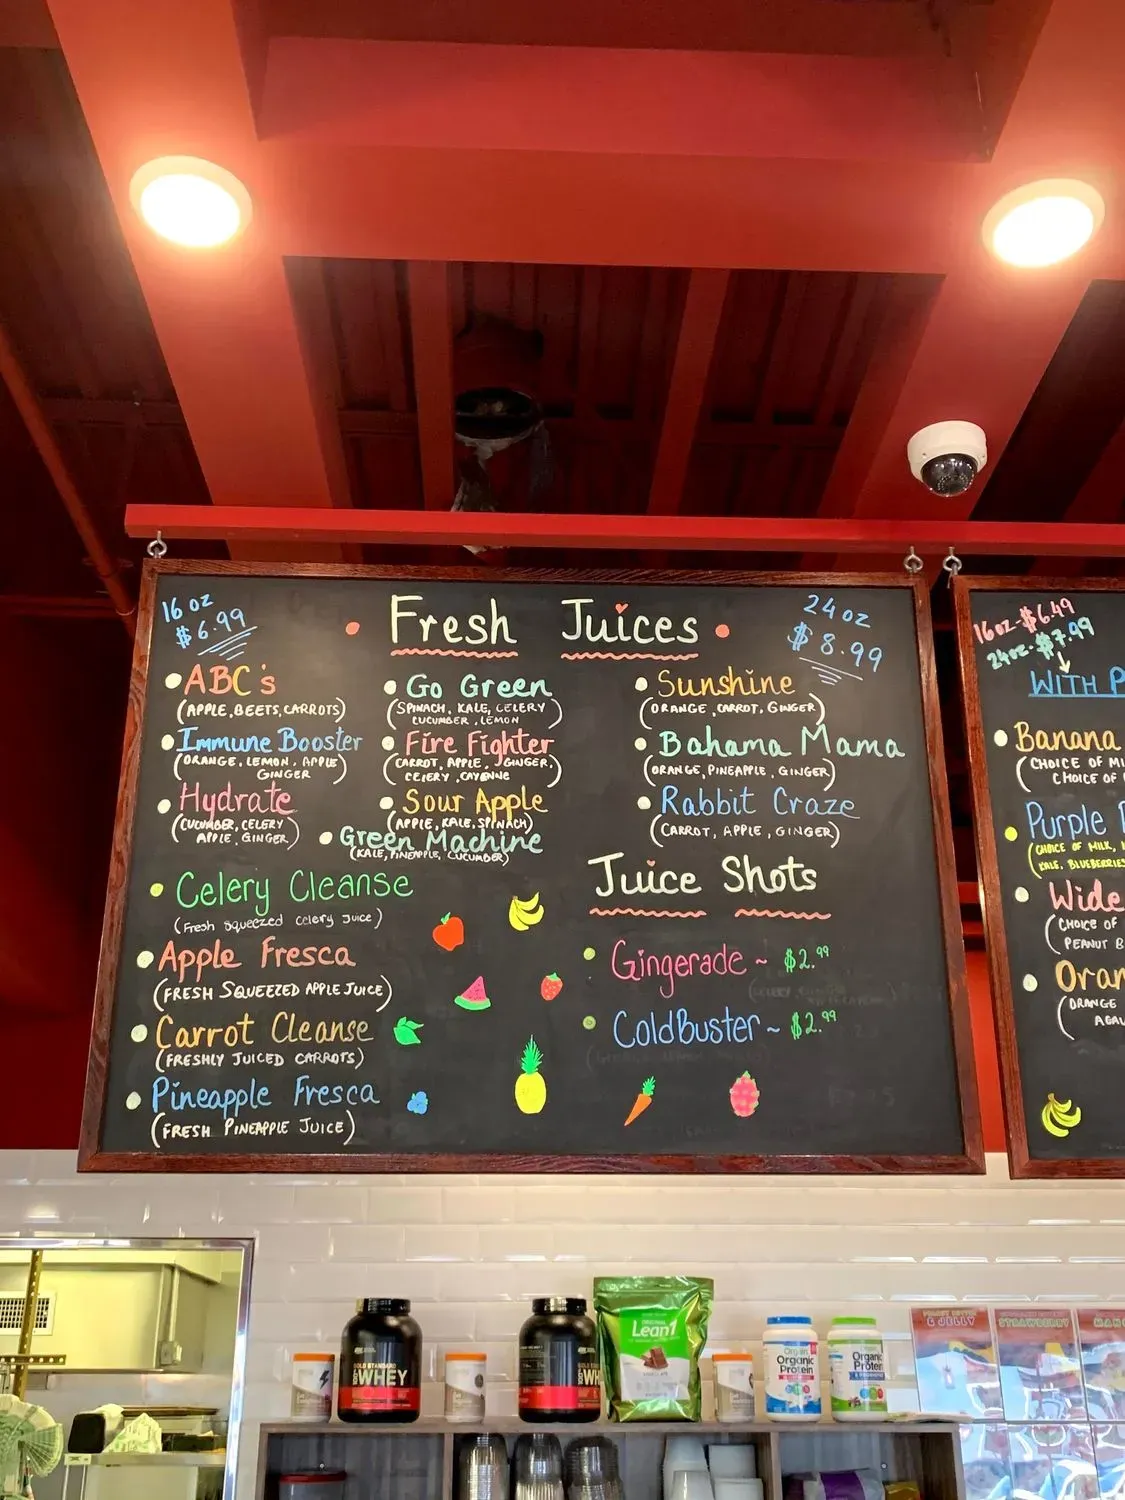 16 oz
$6.99
Fresh Juices
24 oz
$8.99
ABC's
(APPLE, BEETS, CARROTS)
Immune Booster
(ORANGE, LEMON, APPLE
GINGER)
Hydrate
(CUCUMBER, CELERY
APPLE, GINGER)
Go Green
(SPINACH, KALE, CELERY
CUCUMBER, LEMON)
Fire Fighter
(CARROT, APPLE, GINGER,
CELERY, CAYENNE)
Sour Apple
(APPLE, KALE, SPINACH)
Green Machine
(KALE, PINEAPPLE, CUCUMBER)
Sunshine
(ORANGE, CARROT, GINGER)
Bahama Mama
(ORANGE, PINEAPPLE, GINGER)
Rabbit Craze
(CARROT, APPLE, GINGER)
Celery Cleanse
(Fresh Squeezed Celery Juice)
Apple Fresca
(FRESH SQUEEZED APPLE JUICE)
Carrot Cleanse
(FRESHLY JUICED CARROTS)
Pineapple Fresca
(FRESH PINEAPPLE JUICE)
Juice Shots
Gingerade ~ $2.99
ColdBuster ~ $2.99
16oz-$6.49
24oz-$7.99
WITH P
Banana
(CHOICE OF MI
CHOICE OF
Purple
(CHOICE OF MILK,
KALE, BLUEBERRIES
Wide
(CHOICE OF
PEANUT B
Oran
(ORANGE
AGAV
GOLD STANDARD
WHEY
GOLD STANDARD
WH
Lean1
Orgain
Organic
Protein
Orgain
Organic
Protein
PEANUT BUTTER
& JELLY
STRAWBERRY
MAN